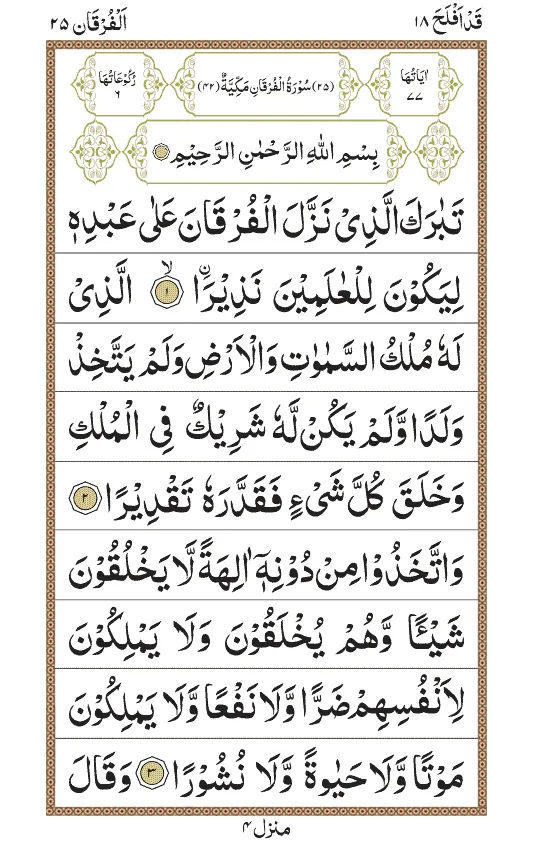 قَدْ اَفْلَحَ ١٨
اَلْفُرْقَان ٢٥
اٰيَاتُهَا ٧٧
(٢٥) سُوْرَةُ الْفُرْقَانِ مَكِّيَّةٌ (٤٢)
رُكُوْعَاتُهَا ٦
بِسْمِ اللّٰهِ الرَّحْمٰنِ الرَّحِيْمِ
تَبٰرَكَ الَّذِىْ نَزَّلَ الْفُرْقَانَ عَلٰى عَبْدِهٖ
لِيَكُوْنَ لِلْعٰلَمِيْنَ نَذِيْرًا ۙ‏ ﴿۱﴾ الَّذِىْ
لَهٗ مُلْكُ السَّمٰوٰتِ وَالْاَرْضِ وَلَمْ يَتَّخِذْ
وَلَدًا وَّلَمْ يَكُنْ لَّهٗ شَرِيْكٌ فِى الْمُلْكِ
وَخَلَقَ كُلَّ شَىْءٍ فَقَدَّرَهٗ تَقْدِيْرًا ﴿۲﴾
وَاتَّخَذُوْا مِنْ دُوْنِهٖۤ اٰلِهَةً لَّا يَخْلُقُوْنَ
شَيْـًٔا وَّهُمْ يُخْلَقُوْنَ وَلَا يَمْلِكُوْنَ
لِاَنْفُسِهِمْ ضَرًّا وَّلَا نَفْعًا وَّلَا يَمْلِكُوْنَ
مَوْتًا وَّلَا حَيٰوةً وَّلَا نُشُوْرًا ﴿۳﴾ وَقَالَ
منزل ٤